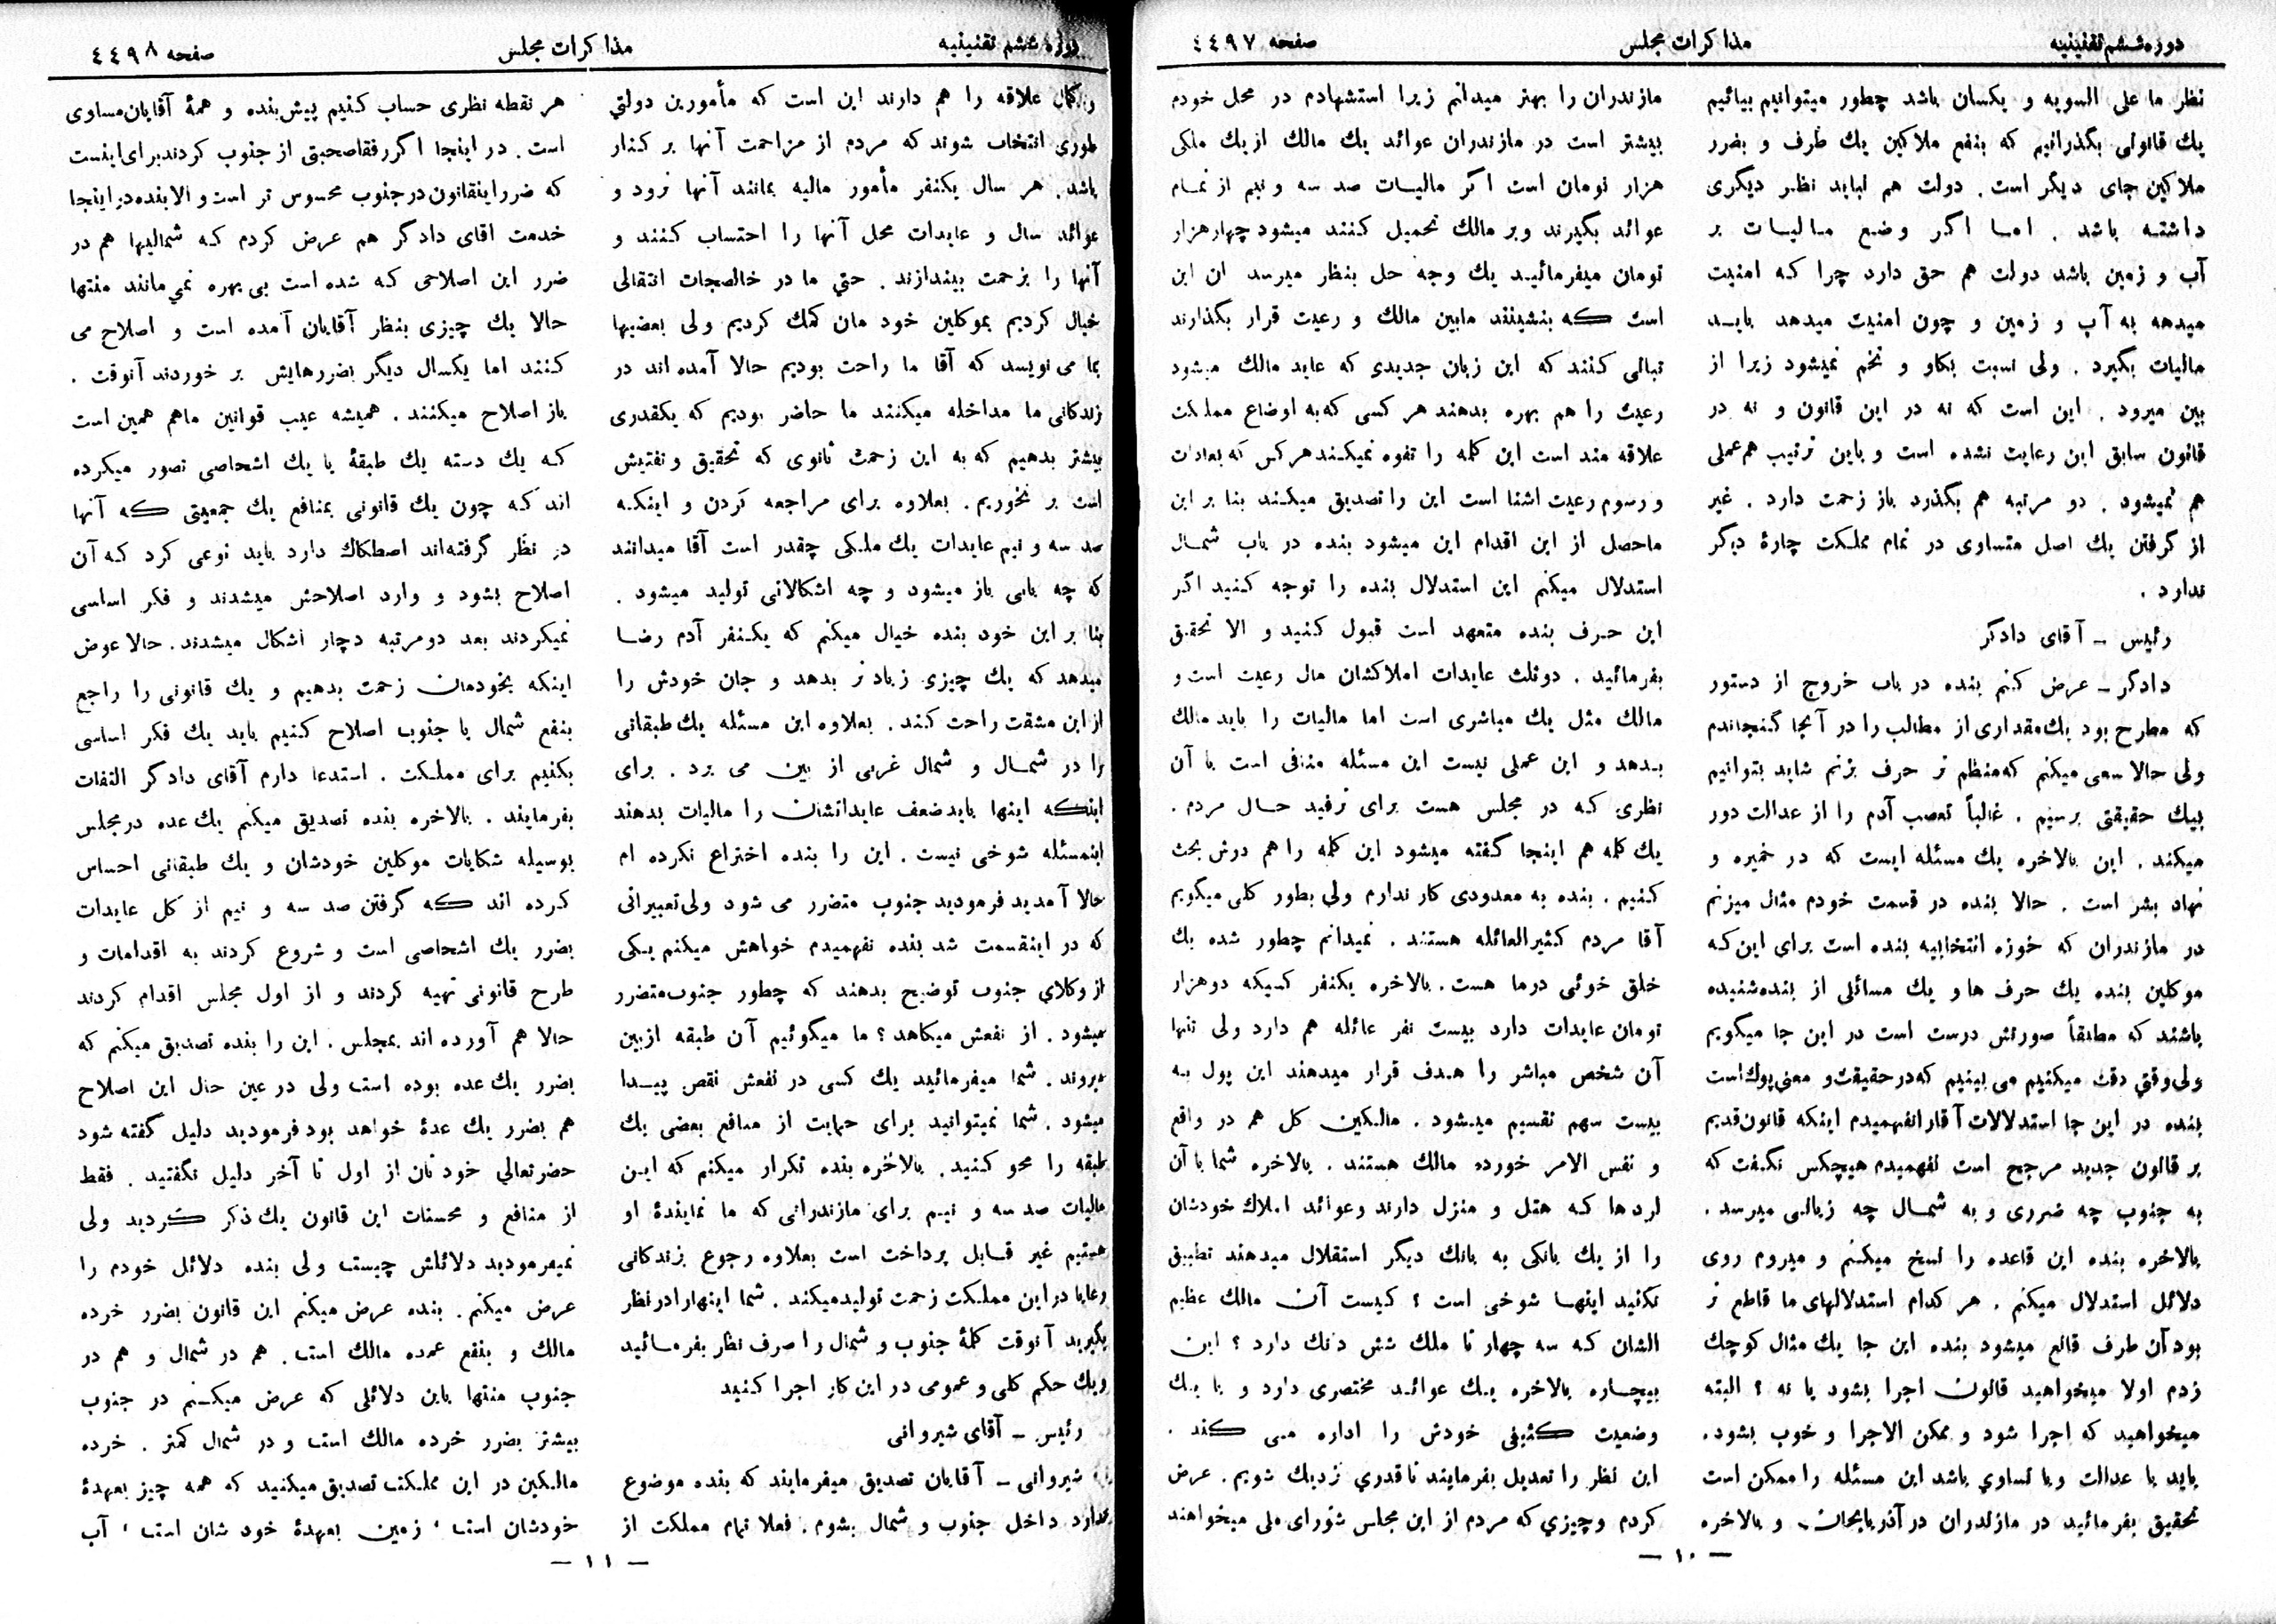 دوره ششم تقنینیه
مذاکرات مجلس
صفحه ٤٤٩٧
نظر ما علی السویه و یکسان باشد چطور میتوانیم بیائیم
یك قانونی بگذرانیم که بنفع ملاکین یك طرف و بضرر
ملاکین جای دیگر است . دولت هم نباید نظر دیگری
داشته باشد . اما اگر وضع مالیات بر
آب و زمین باشد دولت هم حق دارد چرا که امنیت
میدهد به آب و زمین و چون امنیت میدهد باید
مالیات بگیرد . ولی نسبت بگاو و تخم نمیشود زیرا از
بین میرود . این است که نه در این قانون و نه در
قانون سابق این رعایت نشده است و باین ترتیب هم عملی
هم نمیشود . دو مرتبه هم بگذرد باز زحمت دارد . غیر
از گرفتن یك اصل متساوی در تمام مملکت چارهٔ دیگر
ندارد .
رئیس ـ آقای دادگر
دادگر ـ عرض کنم بنده در باب خروج از دستور
که مطرح بود یك مقداری از مطالب را در آنجا گنجاندم
ولی حالا سعی میکنم که منظم تر حرف بزنم شاید بتوانیم
بیك حقیقتی برسیم . غالباً تعصب آدم را از عدالت دور
میکند . این بالاخره یك مسئله ایست که در خمیره و
نهاد بشر است . حالا بنده در قسمت خودم مثال میزنم
در مازندران که حوزه انتخابیه بنده است برای این که
موکلین بنده یك حرف ها و یك مسائلی از بنده شنیده
باشند که مطلقاً صورتش درست است در این جا میگویم
ولی وقتی دقت میکنیم می بینیم که در حقیقت و معنی پوك است
بنده در این جا استدلالات آقارا نفهمیدم اینکه قانون قدیم
بر قانون جدید مرجح است نفهمیدم هیچکس نگفت که
به جنوب چه ضرری و به شمال چه زیانی میرسد .
بالاخره بنده این قاعده را نسخ میکنم و میروم روی
دلائل استدلال میکنم . هر کدام استدلالهای ما قاطع تر
بود آن طرف قانع میشود بنده این جا یك مثال کوچك
زدم اولا میخواهید قانون اجرا بشود یا نه ؟ البته
میخواهید که اجرا شود و ممکن الاجرا و خوب بشود .
باید با عدالت و یا تساوي باشد این مسئله را ممکن است
تحقیق بفرمائید در مازندران در آذربایجان و بالاخره
مازندران را بهتر میدانم زیرا استشهادم در محل خودم
بیشتر است در مازندران عوائد یك مالك از یك ملکی
هزار تومان است اگر مالیات صد سه و نیم از تمام
عوائد بگیرند و بر مالك تحمیل کنند میشود چهار هزار
تومان میفرمائید یك وجه حل بنظر میرسد ان این
است که بنشینند مابین مالك و رعیت قرار بگذارند
تبانی کنند که این زیان جدیدی که عاید مالك میشود
رعیت را هم بهره بدهند هر کسی که به اوضاع مملکت
علاقه مند است این کلمه را تفوه نمیکند هر کس که بعادات
و رسوم رعیت اشنا است این را تصدیق میکند بنا بر این
ماحصل از این اقدام این میشود بنده در باب شمال
استدلال میکنم این استدلال بنده را توجه کنید اگر
این حرف بنده متعهد است قبول کنید و الا تحقیق
بفرمائید . دوثلث عایدات املاکشان مال رعیت است و
مالك مثل یك مباشری است اما مالیات را باید مالك
بدهد و این عملی نیست این مسئله منافی است با آن
نظری که در مجلس هست برای ترفیه حال مردم .
یك کلمه هم اینجا گفته میشود این کلمه را هم درش بحث
کنیم . بنده به معدودی کار ندارم ولی بطور کلی میگویم
آقا مردم کثیرالعائله هستند . نمیدانم چطور شده یك
خلق خوئی درما هست . بالاخره یکنفر کسیکه دوهزار
تومان عایدات دارد بیست نفر عائله هم دارد ولی تنها
آن شخص مباشر را هدف قرار میدهند این پول به
بیست سهم تقسیم میشود . مالکین کل هم در واقع
و نفس الامر خورده مالك هستند . بالاخره شما با آن
لردها که هتل و منزل دارند و عوائد املاك خودشان
را از یك بانکی به بانك دیگر استقلال میدهند تطبیق
نکنید اینها شوخی است ؟ کیست آن مالك عظیم
الشان که سه چهار تا ملك شش دانك دارد ؟ این
بیچاره بالاخره یك عوائد مختصری دارد و با یك
وضعیت کثیفی خودش را اداره می کند .
این نظر را تعدیل بفرمایند تا قدري نزدیك شویم . عرض
کردم و چیزي که مردم از این مجلس شورای ملی میخواهند
ـ ۱۰ ـ
دوره ششم تقنینیه
مذاکرات مجلس
صفحه ٤٤٩٨
و کمال علاقه را هم دارند این است که مأمورین دولتي
طوری انتخاب شوند که مردم از مزاحمت آنها بر کنار
باشد . هر سال یکنفر مأمور مالیه بمانند آنها نرود و
عوائد سال و عایدات محل آنها را احتساب کنند و
آنها را بزحمت بیندازند . حتي ما در خالصجات انتقالی
خیال کردیم بموکلین خود مان کمك کردیم ولی بعضیها
بما می نویسد که آقا ما راحت بودیم حالا آمده اند در
زندکانی ما مداخله میکنند ما حاضر بودیم که یکقدری
بیشتر بدهیم که به این زحمت ثانوی که تحقیق و تفتیش
است بر نخوریم . بعلاوه برای مراجعه کردن و اینکه
صد سه و نیم عایدات یك ملکی چقدر است آقا میدانند
که چه بابی باز میشود و چه اشکالاتی تولید میشود .
بنا بر این خود بنده خیال میکنم که یکنفر آدم رضا
میدهد که یك چیزی زیاد تر بدهد و جان خودش را
از این مشقت راحت کند . بعلاوه این مسئله یك طبقاتی
را در شمال و شمال غربی از بین می برد . برای
اینکه اینها باید ضعف عایداتشان را مالیات بدهند
اینمسئله شوخی نیست . این را بنده اختراع نکرده ام
حالا آمدید فرمودید جنوب متضرر می شود ولی تعبیراتی
که در اینقسمت شد بنده نفهمیدم خواهش میکنم یکی
از وکلاي جنوب توضیح بدهند که چطور جنوب متضرر
میشود . از نفعش میکاهد ؟ ما میگوئیم آن طبقه ازبین
میروند . شما میفرمائید یك کسی در نفعش نقص پیدا
میشود . شما نمیتوانید برای حمایت از منافع بعضی یك
طبقه را محو کنید . بالاخره بنده تکرار میکنم که این
مالیات صد سه و نیم برای مازندرانی که ما نمایندهٔ او
هستیم غیر قابل پرداخت است بعلاوه رجوع بزندکانی
رعایا در این مملکت زحمت تولید میکند . شما اینهارا در نظر
بگیرید آنوقت کلمهٔ جنوب و شمال را صرف نظر بفرمائید
و یك حکم کلی و عمومی در این کار اجرا کنید
رئیس ـ آقای شیروانی
شیروانی ـ آقایان تصدیق میفرمایند که بنده موضوع
ندارد داخل جنوب و شمال بشوم . فعلا تمام مملکت از
هر نقطه نظری حساب کنیم پیش بنده و همهٔ آقایان مساوی
است . در اینجا اگر رفقا صحبتی از جنوب کردند برای اینست
که ضرر اینقانون در جنوب محسوس تر است و الا بنده در اینجا
خدمت اقای دادگر هم عرض کردم که شمالیها هم در
ضرر این اصلاحی که شده است بی بهره نمی مانند منتها
حالا یك چیزی بنظر آقایان آمده است و اصلاح می
کنند اما یکسال دیگر بضررهایش بر خوردند آنوقت .
باز اصلاح میکنند . همیشه عیب قوانین ماهم همین است
که یك دسته یك طبقهٔ یا یك اشخاصی تصور میکرده
اند که چون یك قانونی بمنافع یك جمعیتی که آنها
در نظر گرفته‌اند اصطکاك دارد باید نوعی کرد که آن
اصلاح بشود و وارد اصلاحش میشدند و فکر اساسی
نمیکردند بعد دو مرتبه دچار اشکال میشدند . حالا عوض
اینکه بخودمان زحمت بدهیم و یك قانونی را راجع
بنفع شمال یا جنوب اصلاح کنیم باید یك فکر اساسی
بکنیم برای مملکت . استدعا دارم آقای دادگر التفات
بفرمایند . بالاخره بنده تصدیق میکنم یك عده در مجلس
بوسیله شکایات موکلین خودشان و یك طبقاتی احساس
کرده اند که گرفتن صد سه و نیم از کل عایدات
بضرر یك اشخاصی است و شروع کردند به اقدامات و
طرح قانونی تهیه کردند و از اول مجلس اقدام کردند
حالا هم آورده اند بمجلس . این را بنده تصدیق میکنم که
بضرر یك عده بوده است ولی در عین حال این اصلاح
هم بضرر یك عدهٔ خواهد بود فرمودید دلیل گفته شود
حضرتعالی خودتان از اول تا آخر دلیل نگفتید . فقط
از منافع و محسنات این قانون یك ذکر کردید ولی
نمیفرمودید دلائلش چیست ولی بنده دلائل خودم را
عرض میکنم . بنده عرض میکنم این قانون بضرر خرده
مالك و بنفع عمده مالك است . هم در شمال و هم در
جنوب منتها باین دلائلی که عرض میکنم در جنوب
بیشتر بضرر خرده مالك است و در شمال کمتر . خرده
مالکین در این مملکت تصدیق میکنید که همه چیز بعهدهٔ
خودشان است ، زمین بعهدهٔ خود شان است ، آب
ـ ۱۱ ـ